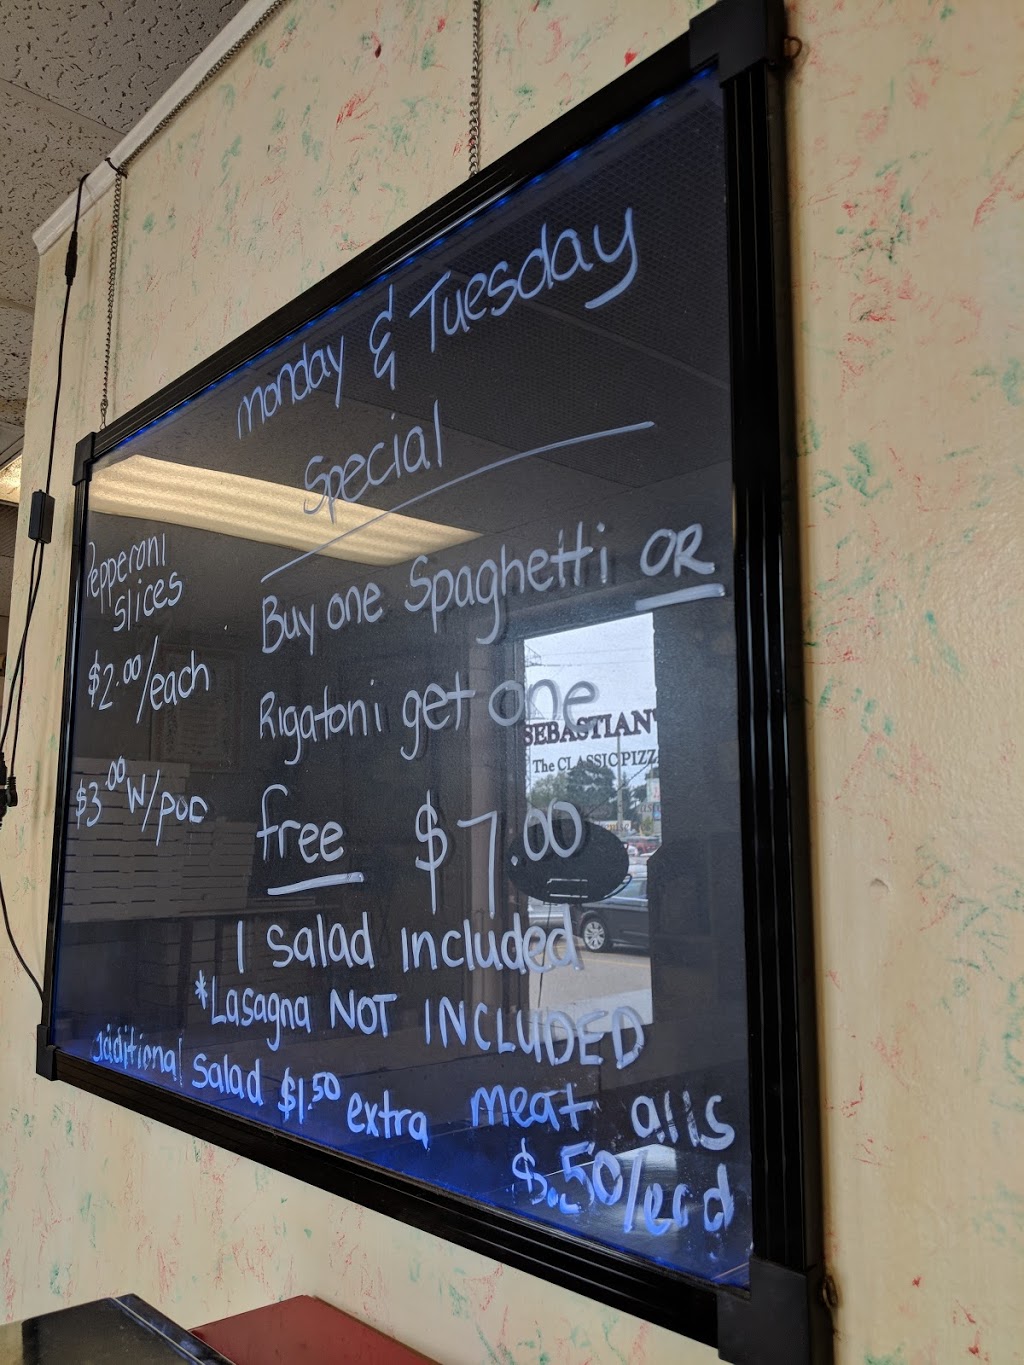 monday & Tuesday
Special
Pepperoni
slices
$2.00/each
$3.00 w/pop
Buy one Spaghetti OR
Rigatoni get one
free $7.00
1 salad included
*Lasagna NOT INCLUDED
additional salad $1.50 extra
meat
$.50/
SEBASTIAN'
The CLASSIC PIZZ